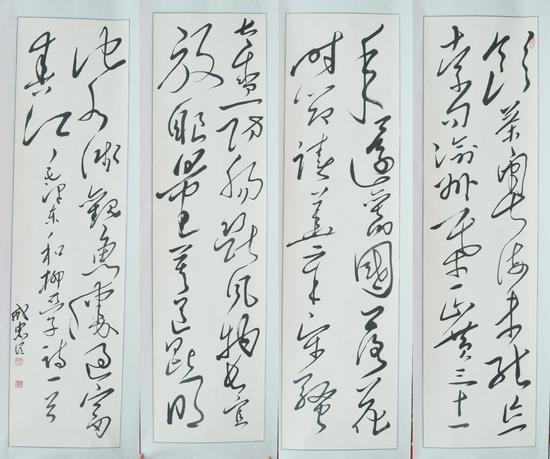 飲茶粤海未能忘
索句渝州叶正黄三十一
年還舊國落花
时節讀華章牢騷
太盛防肠断风物长宜
放眼量莫道昆明
池水浅觀魚勝过富
春江
毛泽东和柳亚子诗一首